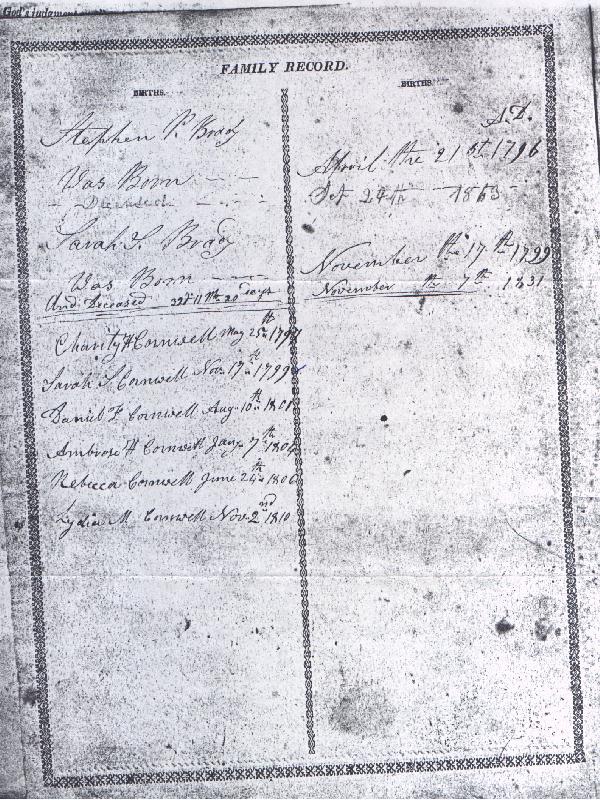 God's judgment
FAMILY RECORD.
BIRTHS. BIRTHS.
A.D.
Stephen P. Brady April the 21st 1796
Was Born
Deceased Oct 24th 1863
Sarah S. Brady November the 17th 1799
Was Born
And Deceased November the 7th 1831
Charity H Cornwell May 25th 1797
Sarah S. Cornwell Nov. 17th 1799
Daniel F Cornwell Aug. 10th 1801
Ambrose H Cornwell Jany 7th 1804
Rebecca Cornwell June 24th 1806
Lydia M. Cornwell Nov. 2nd 1810